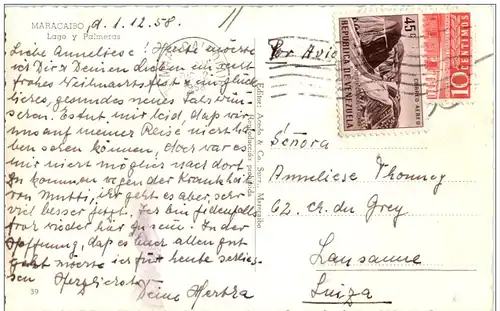 MARACAIBO, d. 1.12.58.
Lago y Palmeras
Liebe Anneliese! Heute möchte
ich Dir & Deinen Lieben ein recht
frohes Weihnachtsfest & ein glück-
liches, gesundes neues Jahr wün-
schen. Es tut mir leid, dass wir
uns auf meiner Reise nicht ha-
ben sehen können, aber war es
mir nicht möglich nach dort
zu kommen wegen der Krankheit
von Mutti. Ihr geht es aber sehr
viel besser jetzt. Ich bin jedenfalls
froh wieder hier zu sein. In der
Hoffnung, dass es Euch allen gut
geht möchte ich für heute schlies-
sen
Herzlichst
Deine Hertha
39
Editor: Aredo & Co. Sucr. Maracaibo
Reproducción prohibida
Por Avión
45
REPUBLICA DE VENEZUELA
CORREO AEREO
10 CENTIMOS
Señora
Anneliese Thonney
62. ch. du Grey
Lausanne
Suiza